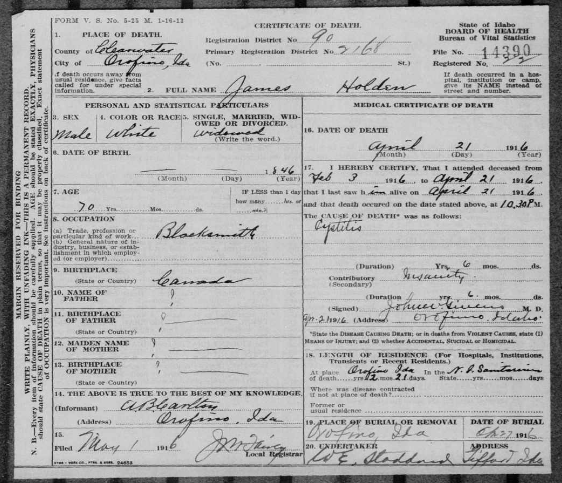 FORM V. S. No. 5-25 M. 1-16-13
CERTIFICATE OF DEATH.
State of Idaho
BOARD OF HEALTH
Bureau of Vital Statistics
1. PLACE OF DEATH.
County of Clearwater
City of Orofino, Ida
Registration District No. 90
Primary Registration District No. 2168
(No. St.)
File No. 14390
Registered No.
If death occurs away from usual residence, give facts called for under special information.
2. FULL NAME James Holden
If death occurred in a hospital, institution or camp, give its NAME instead of street and number.
PERSONAL AND STATISTICAL PARTICULARS
3. SEX
Male
4. COLOR OR RACE
White
5. SINGLE, MARRIED, WIDOWED OR DIVORCED.
widowed
(Write the word.)
6. DATE OF BIRTH.
1846
(Month) (Day) (Year)
7. AGE
70 Yrs. Mos. ds.
IF LESS than 1 day
how many
8. OCCUPATION
(a) Trade, profession or particular kind of work
(b) General nature of industry, business, or establishment in which employed (or employer)
Blacksmith
9. BIRTHPLACE
(State or Country)
Canada
10. NAME OF FATHER ?
11. BIRTHPLACE OF FATHER ?
(State or Country)
12. MAIDEN NAME OF MOTHER ?
13. BIRTHPLACE OF MOTHER ?
(State or Country)
14. THE ABOVE IS TRUE TO THE BEST OF MY KNOWLEDGE
(Informant)
(Address) Orofino, Ida
15.
Filed May 1 1916
Local Registrar
MEDICAL CERTIFICATE OF DEATH
16. DATE OF DEATH
April 21 1916
(Month) (Day) (Year)
17. I HEREBY CERTIFY, That I attended deceased from
Feb 3 1916 to April 21 1916
that I last saw him alive on April 21 1916
and that death occurred on the date stated above, at 10.30 P.M.
The CAUSE OF DEATH* was as follows:
Cystitis
(Duration) Yrs. 6 mos. ds.
Contributory Insanity
(Secondary)
(Duration) yrs. 6 mos. ds.
(Signed) M. D.
1916 (Address) Orofino, Idaho
*State the DISEASE CAUSING DEATH; or in deaths from VIOLENT CAUSES, state (1) MEANS OF INJURY; and (2) whether ACCIDENTAL, SUICIDAL or HOMICIDAL.
18. LENGTH OF RESIDENCE (For Hospitals, Institutions, Transients or Recent Residents.)
At place Orofino Ida In the N. I. Sanitarium
of death yrs 2 mos. 21 days. State yrs. mos. days
Where was disease contracted
if not at place of death?
Former or
usual residence
19. PLACE OF BURIAL OR REMOVAL
Orofino, Ida
DATE OF BURIAL
20. UNDERTAKER
ADDRESS
WRITE PLAINLY, WITH UNFADING INK—THIS IS A PERMANENT RECORD.
MARGIN RESERVED FOR BINDING